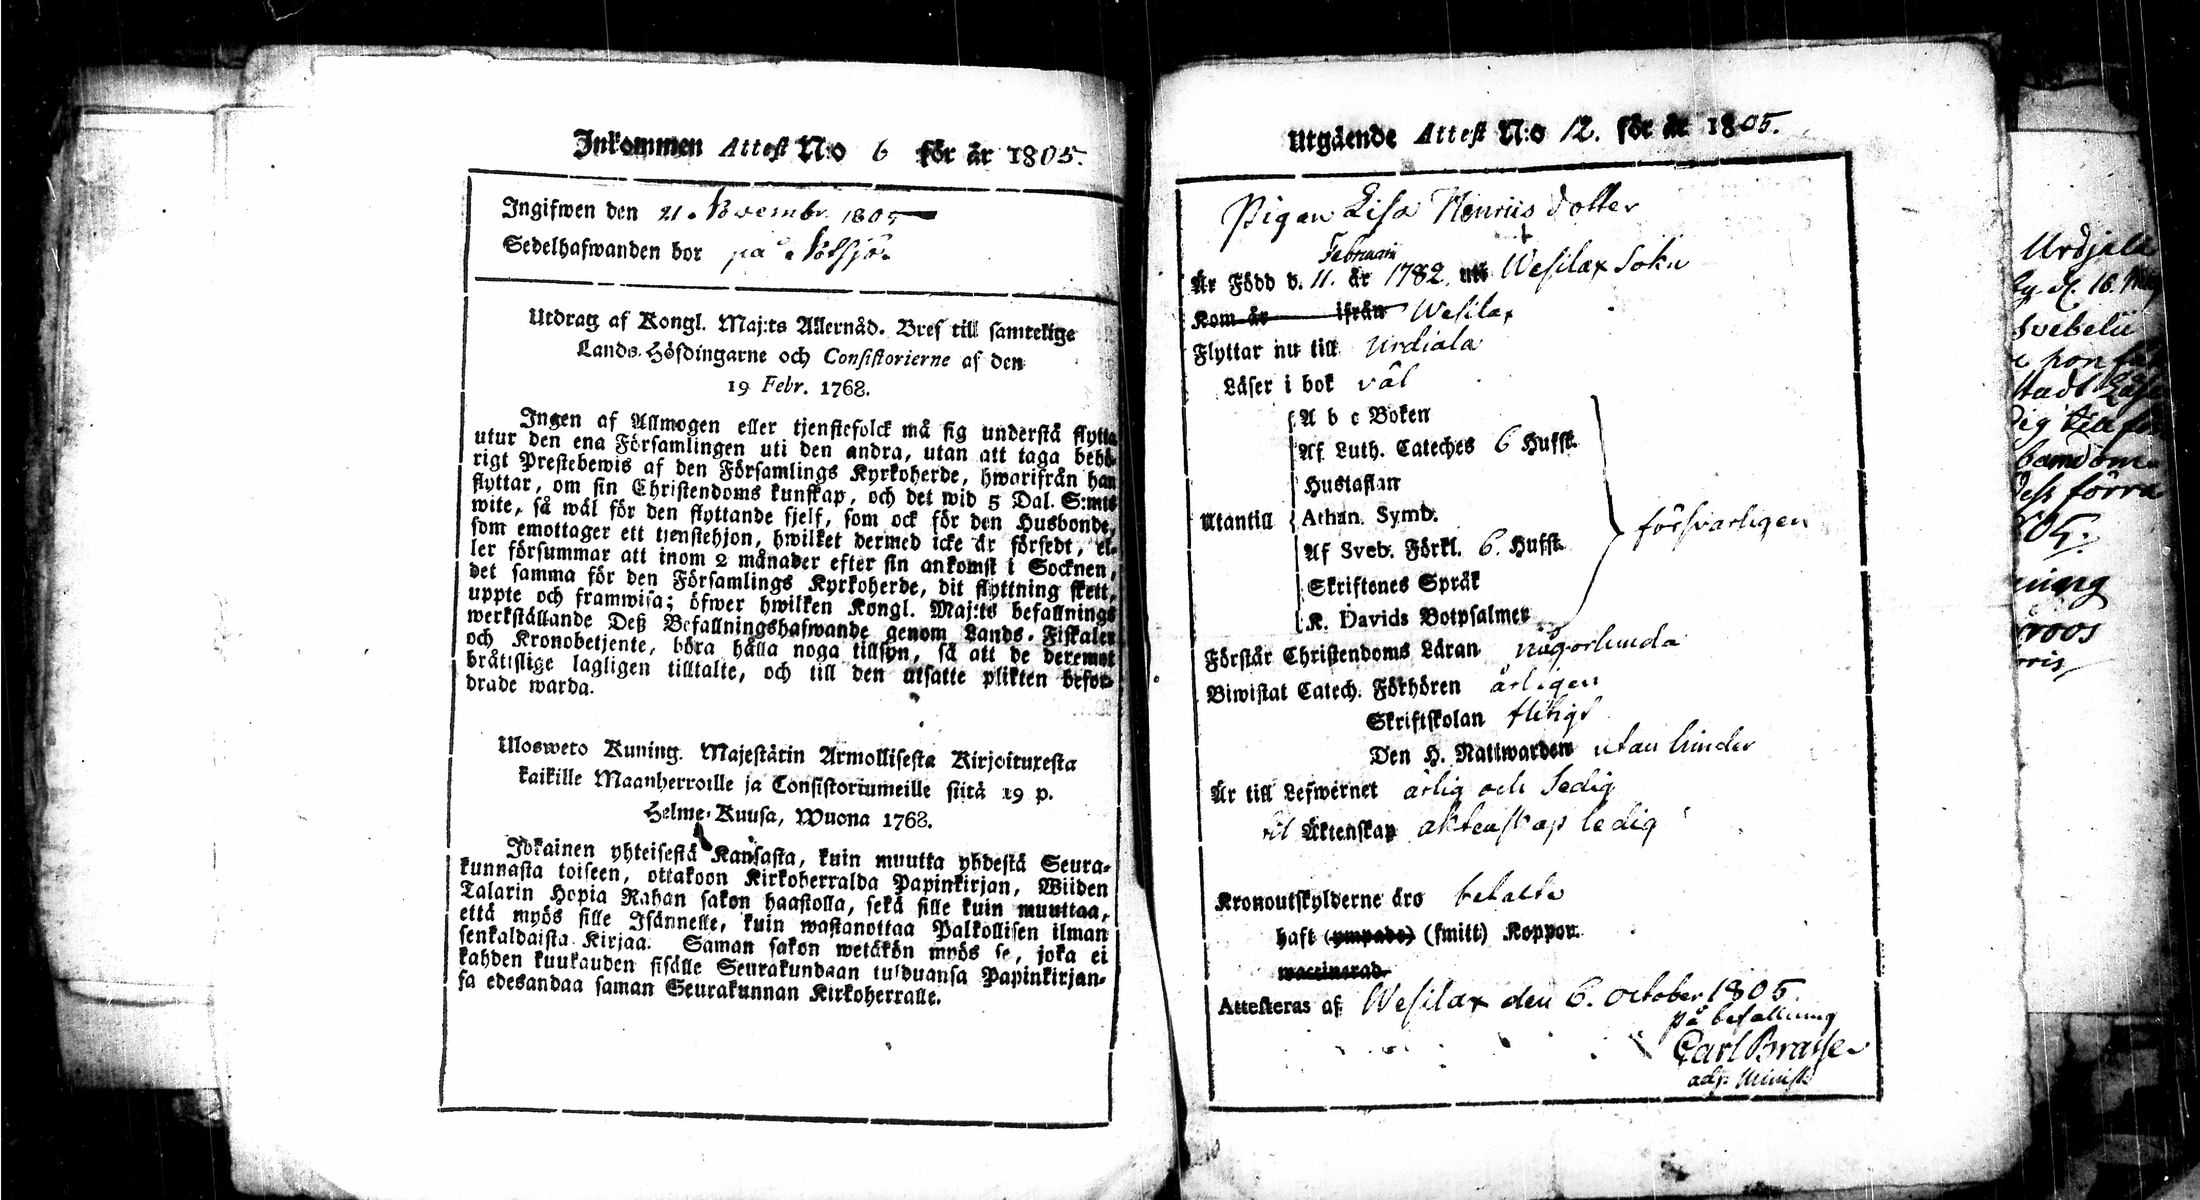 Inkommen Attest N:o 6 för år 1805.
Ingifwen den 21. Novembr. 1805
Sedelhafwanden bor på Nötsjö.
Utdrag af Kongl. Maj:ts Allernåd. Bref till samtelige
Lands-Höfdingarne och Consistorierne af den
19 Febr. 1768.
Ingen af Allmogen eller tjenstefolck må sig understå flytta
utur den ena Församlingen uti den andra, utan att taga behö-
rigt Prestebewis af den Församlings Kyrkoherde, hwarifrån han
flyttar, om sin Christendoms kunskap, och det wid 5 Dal. S:mts
wite, så wäl för den flyttande sjelf, som ock för den Husbonde,
som emottager ett tjenstehjon, hwilket dermed icke är försedt, el-
ler försummar att inom 2 månader efter sin ankomst i Socknen,
det samma för den Församlings Kyrkoherde, dit flyttning skett,
uppte och framwisa; öfwer hwilken Kongl. Maj:ts befallnings
werkställande Deß Befallningshafwande genom Lands-Fiskaler
och Kronobetjente, böra hålla noga tillsyn, så att de deremot
bråttslige lagligen tilltalte, och till den utsatte plikten befor-
drade warda.
Ulosweto Kuning. Majestätin Armollisesta Kirjoituxesta
kaikille Maanherroille ja Consistoriumeille siitä 19 p.
Helme-Kuusa, Wuona 1768.
Jokainen yhteisestä Kansasta, kuin muutta yhdestä Seura-
kunnasta toiseen, ottakoon Kirkoherralda Papinkirjan, Wiiden
Talarin Hopia Rahan sakon haastolla, sekä sille kuin muuttaa,
että myös sille Isännelle, kuin wastanottaa Palkollisen ilman
senkaldaista Kirjaa. Saman sakon wetäkön myös se, joka ei
kahden kuukauden sisälle Seurakundaan tulduansa Papinkirjan-
sa edesandaa saman Seurakunnan Kirkoherralle.
Utgående Attest N:o 12. för år 1805.
Pigan Lisa Henriis dotter
Februari
Är Född d. 11. år 1782 uti Wesilax Sokn
Kom år ifrån Wesilax
Flyttar nu till Urdiala
Läser i bok väl
A b c Boken
Af Luth. Cateches 6 Hufst.
Hustaflan
Utantill Athan. Symb. försvarligen
Af Sveb. Förkl. 6. Hufst.
Skriftenes Språk
K. Davids Botpsalmer
Förstår Christendoms Läran någorlunda
Biwistat Catech. Förhören årligen
Skriftskolan flitigt
Den H. Nattwarden utan hinder
Är till Lefwernet ärlig och Sedig
til Äktenskap äktenskap ledig
Kronoutskylderne äro betalte
haft (ympade) (smitt) Koppor.
vaccinerad.
Attesteras af Wesilax den 6. october 1805.
på befallning
Carl Brasse
adj. Minist.
Urdjala
Svebelii
hon
Läse
barndom
deß förra